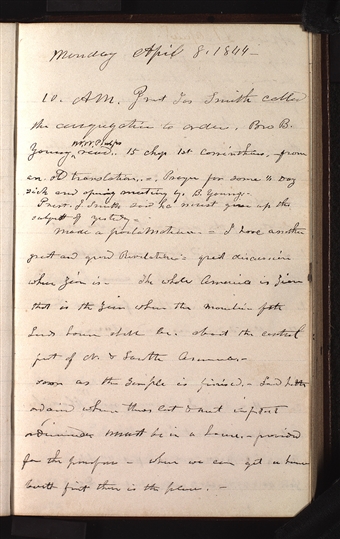 Monday April 8. 1844—
10. A.M. Prest Jos Smith called
the congregation to order, Bro B.
W. W. Phelps
Young read. 15 chap 1st Corinthians. from
an old translation. Prayer for some
sick and opening meeting by B. Young.
Prest. J. Smith said he must give up the
subject of yesterday
Made a proclamation — I have another
great and grand Revelation — great discussion
where Zion is — The whole America is Zion
that is the Zion where the mountain of the
Lords house shall be. about the central
part of N. & South America—
soon as the Temple is finished. — Lord hath
ordained where these last & most import
ordinances must be in a house. — provided
for the purpose — when we can get a house
built first there is the place. —